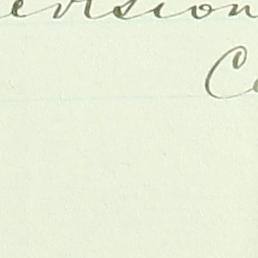 evision
Co